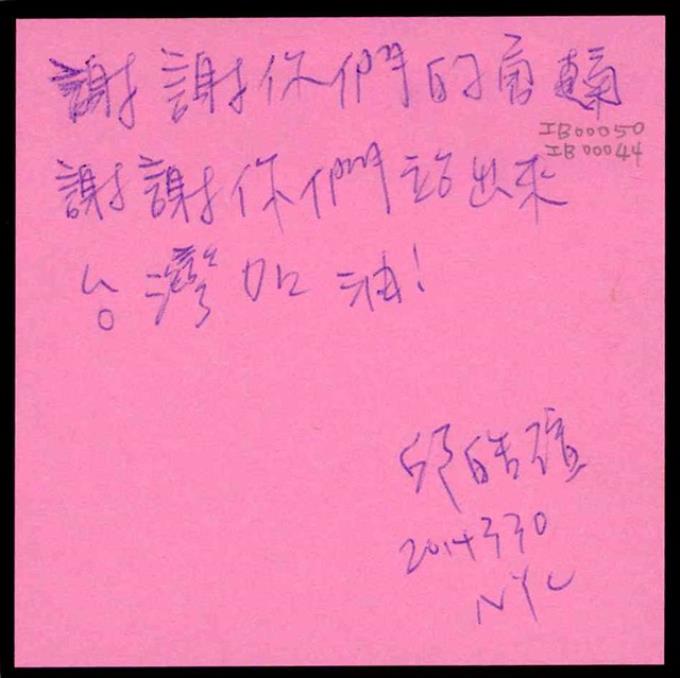 謝謝你們的勇
IB00050
IB00044
謝謝你們站出來
台灣加油!
邱皓
2014330
NYC